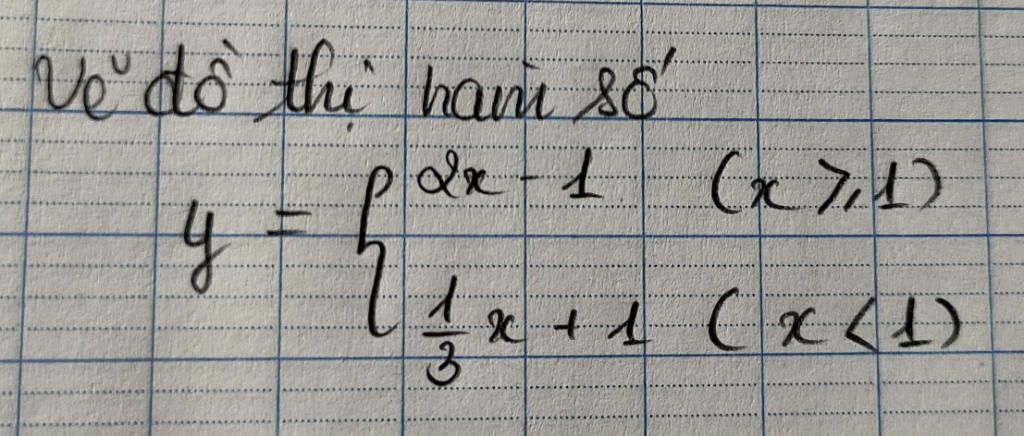 Vẽ đồ thị hàm số
y = { 2x - 1 (x ⩾ 1)
1/3 x + 1 (x < 1)